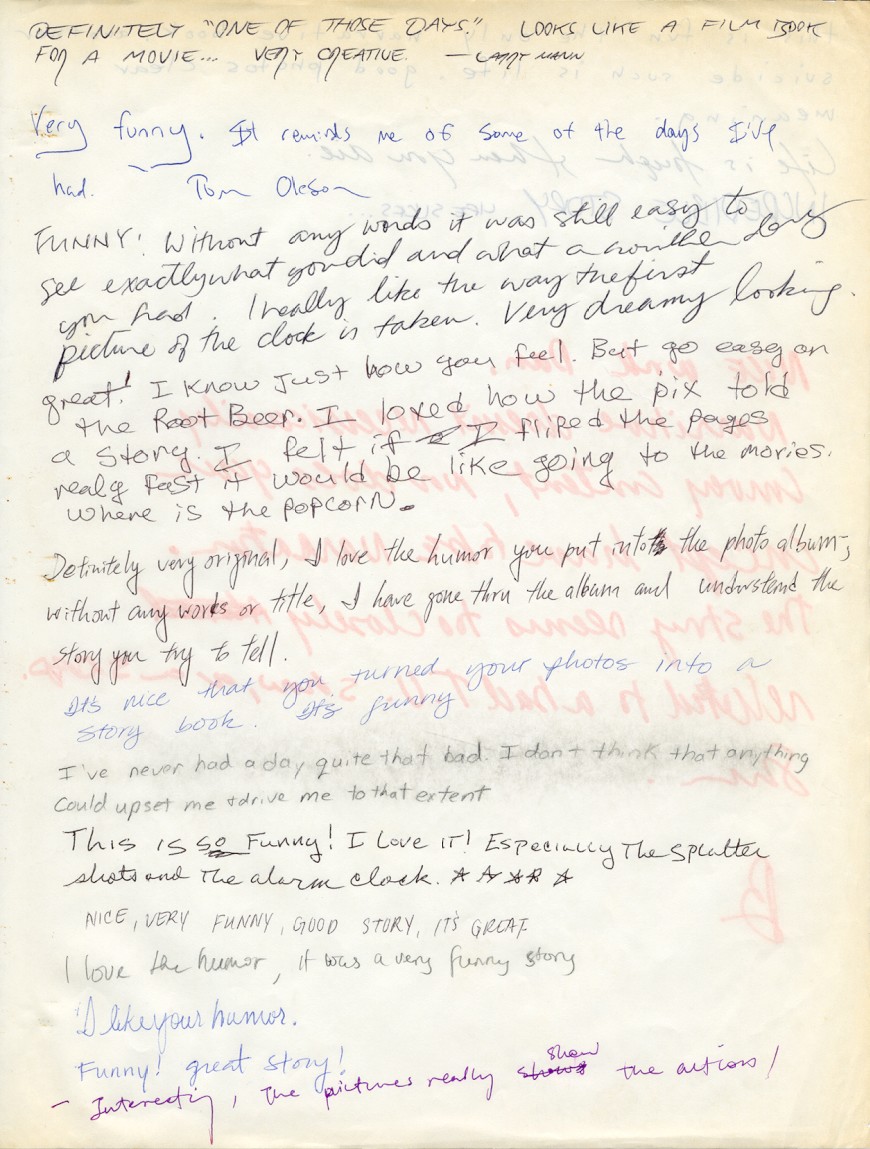 DEFINITELY "ONE OF THOSE DAYS." LOOKS LIKE A FILM BOOK
FOR A MOVIE... VERY CREATIVE. — LARRY MANN
Very funny. It reminds me of some of the days I've
had. Tom Oleson
FUNNY! Without any words it was still easy to
see exactly what you did and what a horrible day
you had. I really like the way the first
picture of the clock is taken. Very dreamy looking.
great! I know just how you feel. But go easy on
the Root Beer. I loved how the pix told
a story. I felt if I fliped the pages
realy fast it would be like going to the movies.
Where is the POPCORN.
Definitely very original, I love the humor you put into the photo album,
without any words or title, I have gone thru the album and understand the
story you try to tell.
Its nice that you turned your photos into a
story book. It's funny
I've never had a day quite that bad. I don't think that anything
Could upset me & drive me to that extent
This is so Funny! I Love IT! Especially The Splatter
shots and The alarm clock.
NICE, VERY FUNNY, GOOD STORY, IT'S GREAT
I love the humor, it was a very funny story
I like your humor.
Funny! great story!
show
– Interesting, The pictures really shows the actions!